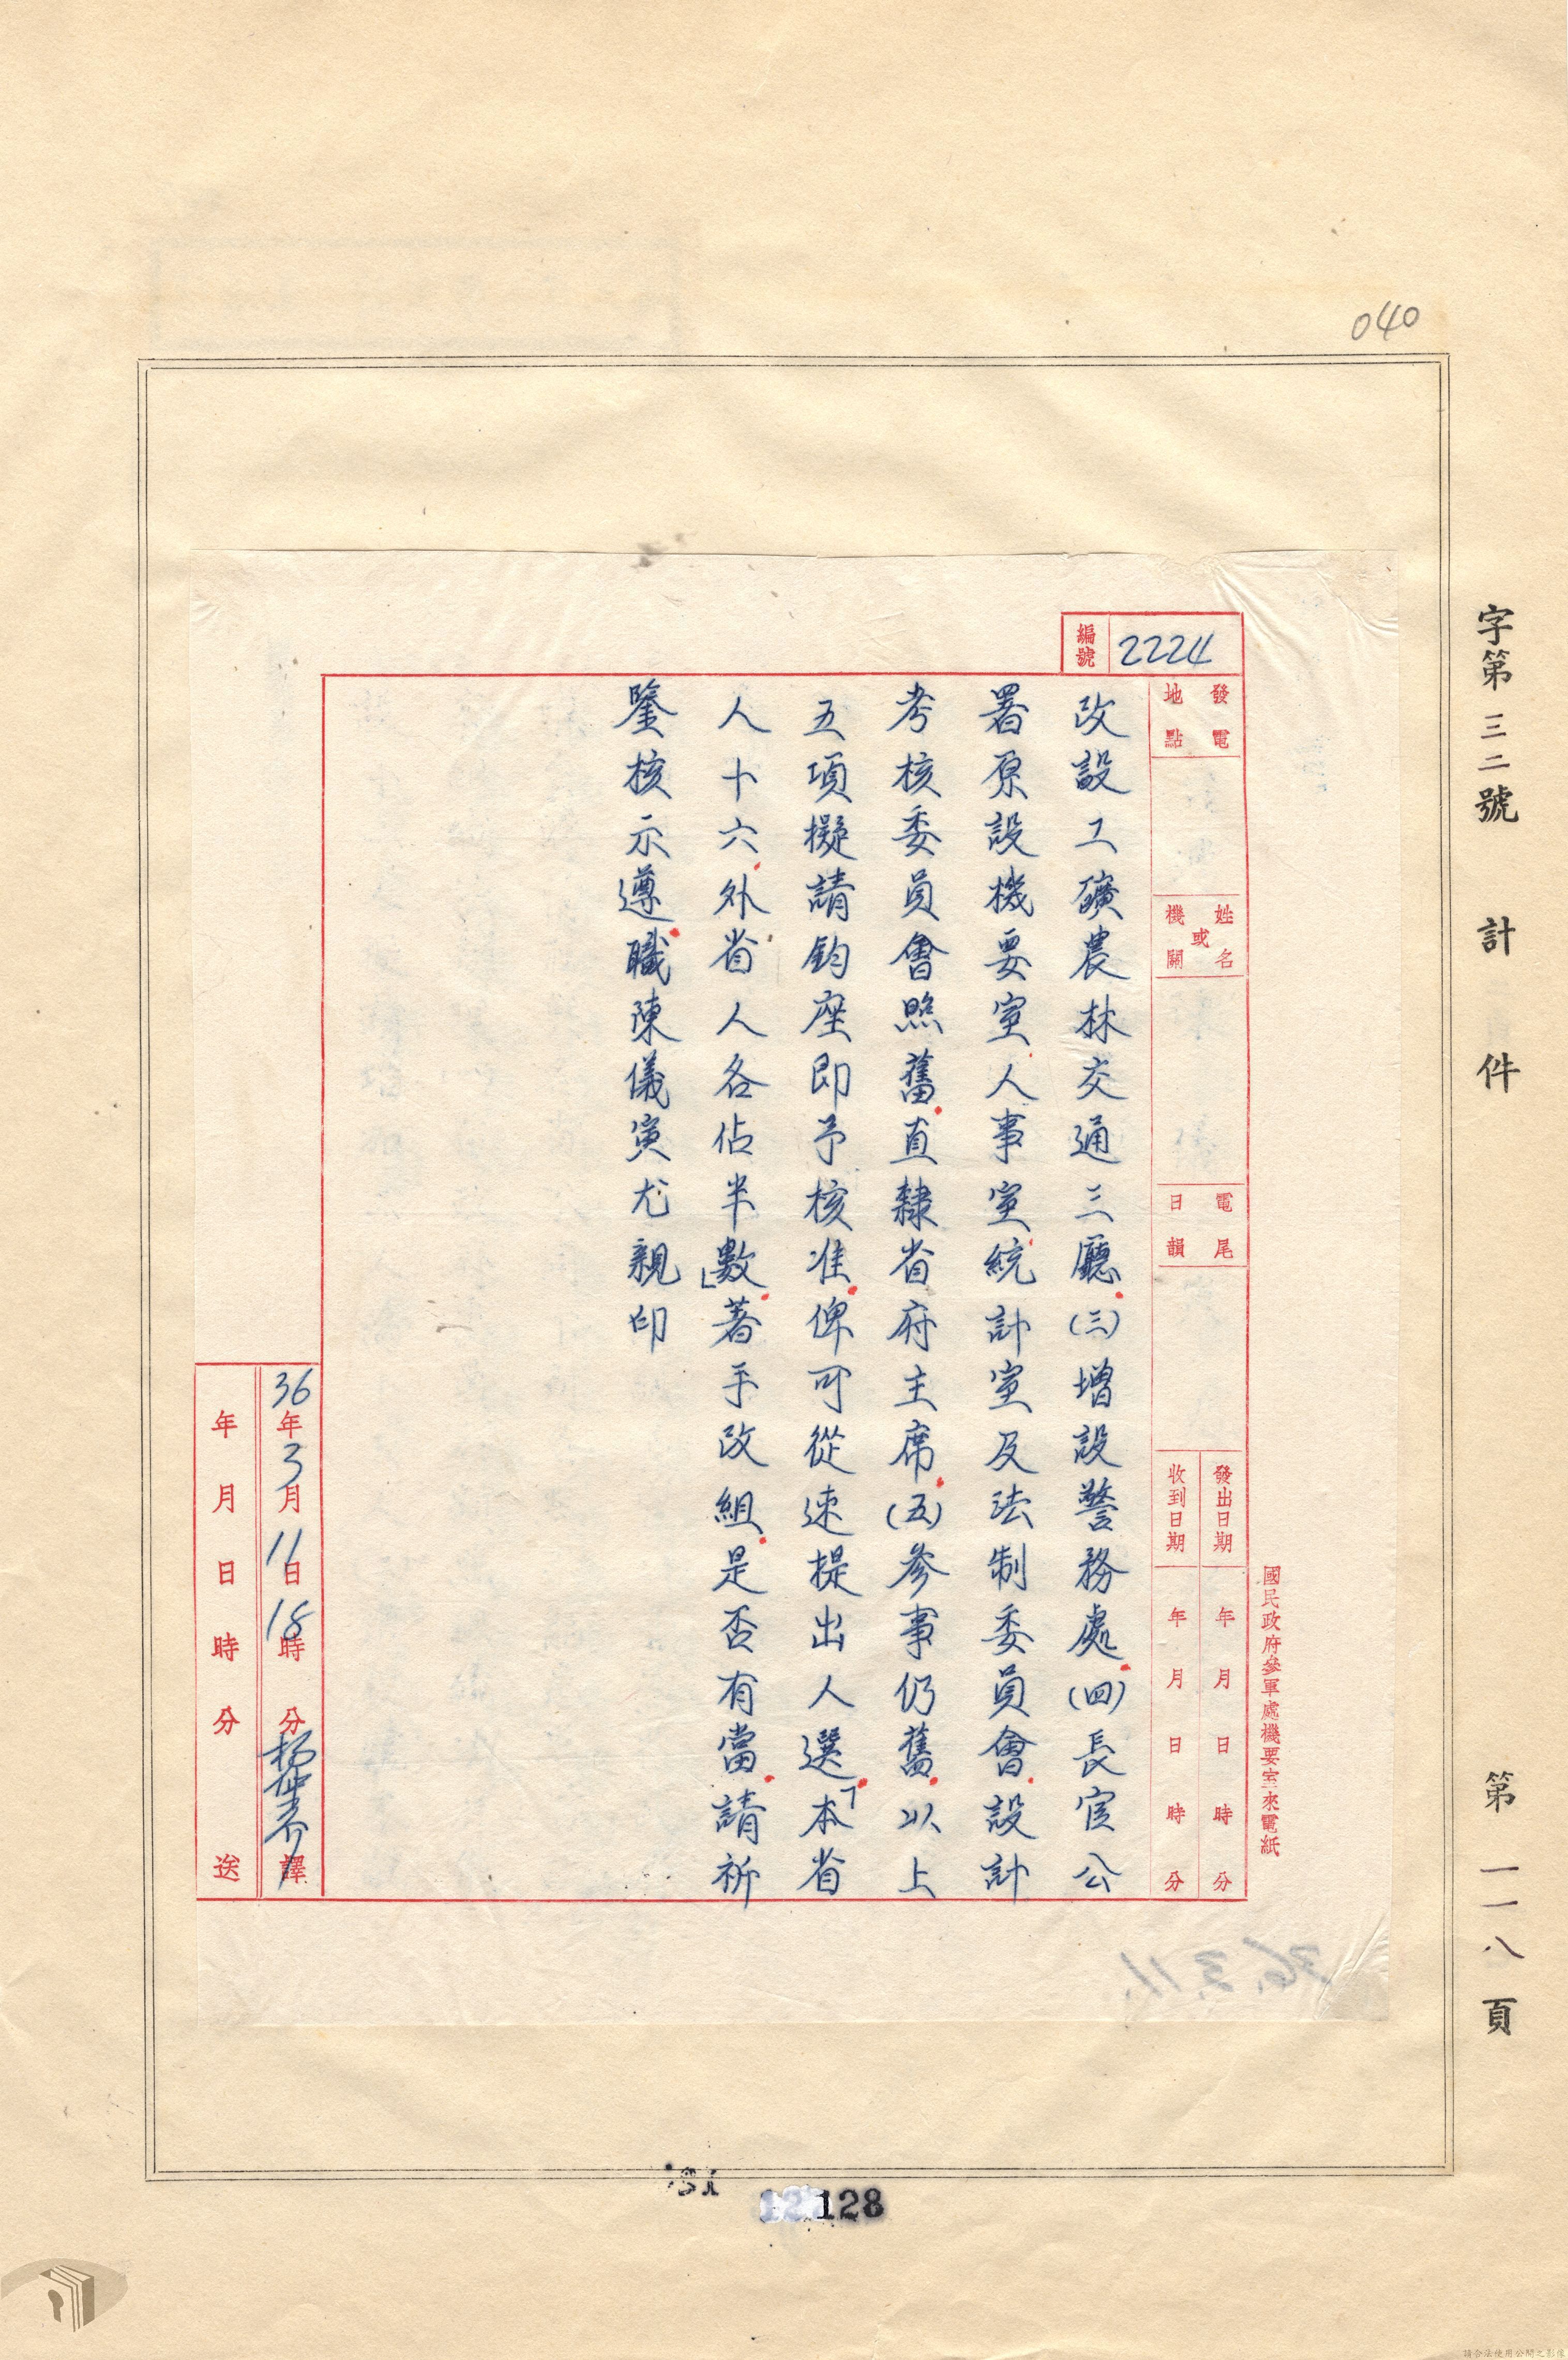 040
字第三二號 計 件 第一一八頁
國民政府參軍處機要室來電紙
編號 2224
發電地點
姓名或機關
電尾日韻
發出日期 年 月 日 時 分
收到日期 年 月 日 時 分
改設工礦農林交通三廳(三)增設警務處(四)長官公
署原設機要室人事室統計室及法制委員會設計
考核委員會照舊直隸省府主席(五)參事仍舊以上
五項擬請鈞座即予核准俾可從速提出人選「本省
人十六外省人各佔半數」著手改組是否有當請祈
鑒核示遵職陳儀寅尤親印
36年3月11日18時 分 譯
年 月 日 時 分 送
36.3.11.
128
請合法使用公開之影像